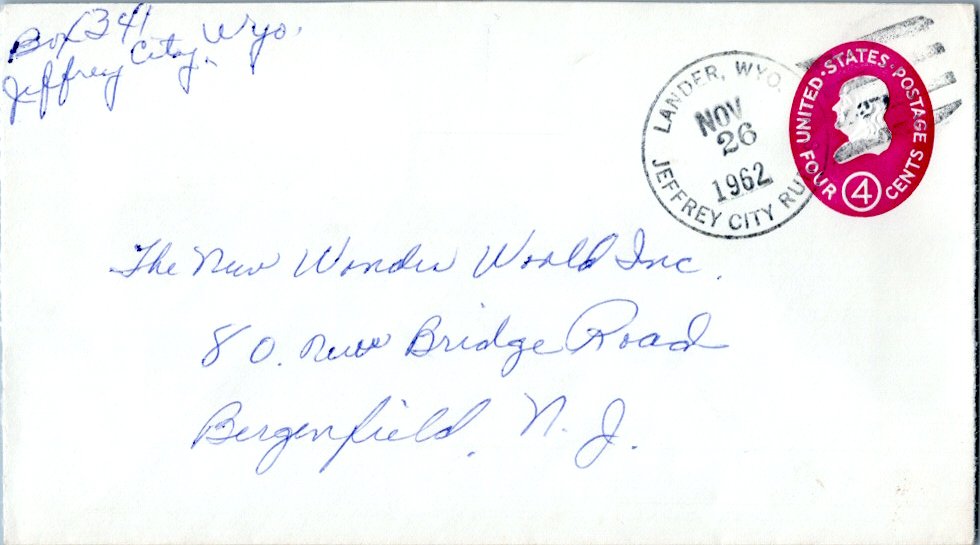 Box 341
Jeffrey City, Wyo.
LANDER, WYO.
NOV
26
1962
JEFFREY CITY RU
UNITED·STATES·POSTAGE
FOUR 4 CENTS
The New Wonder World Inc.
80. New Bridge Road
Bergenfield, N. J.